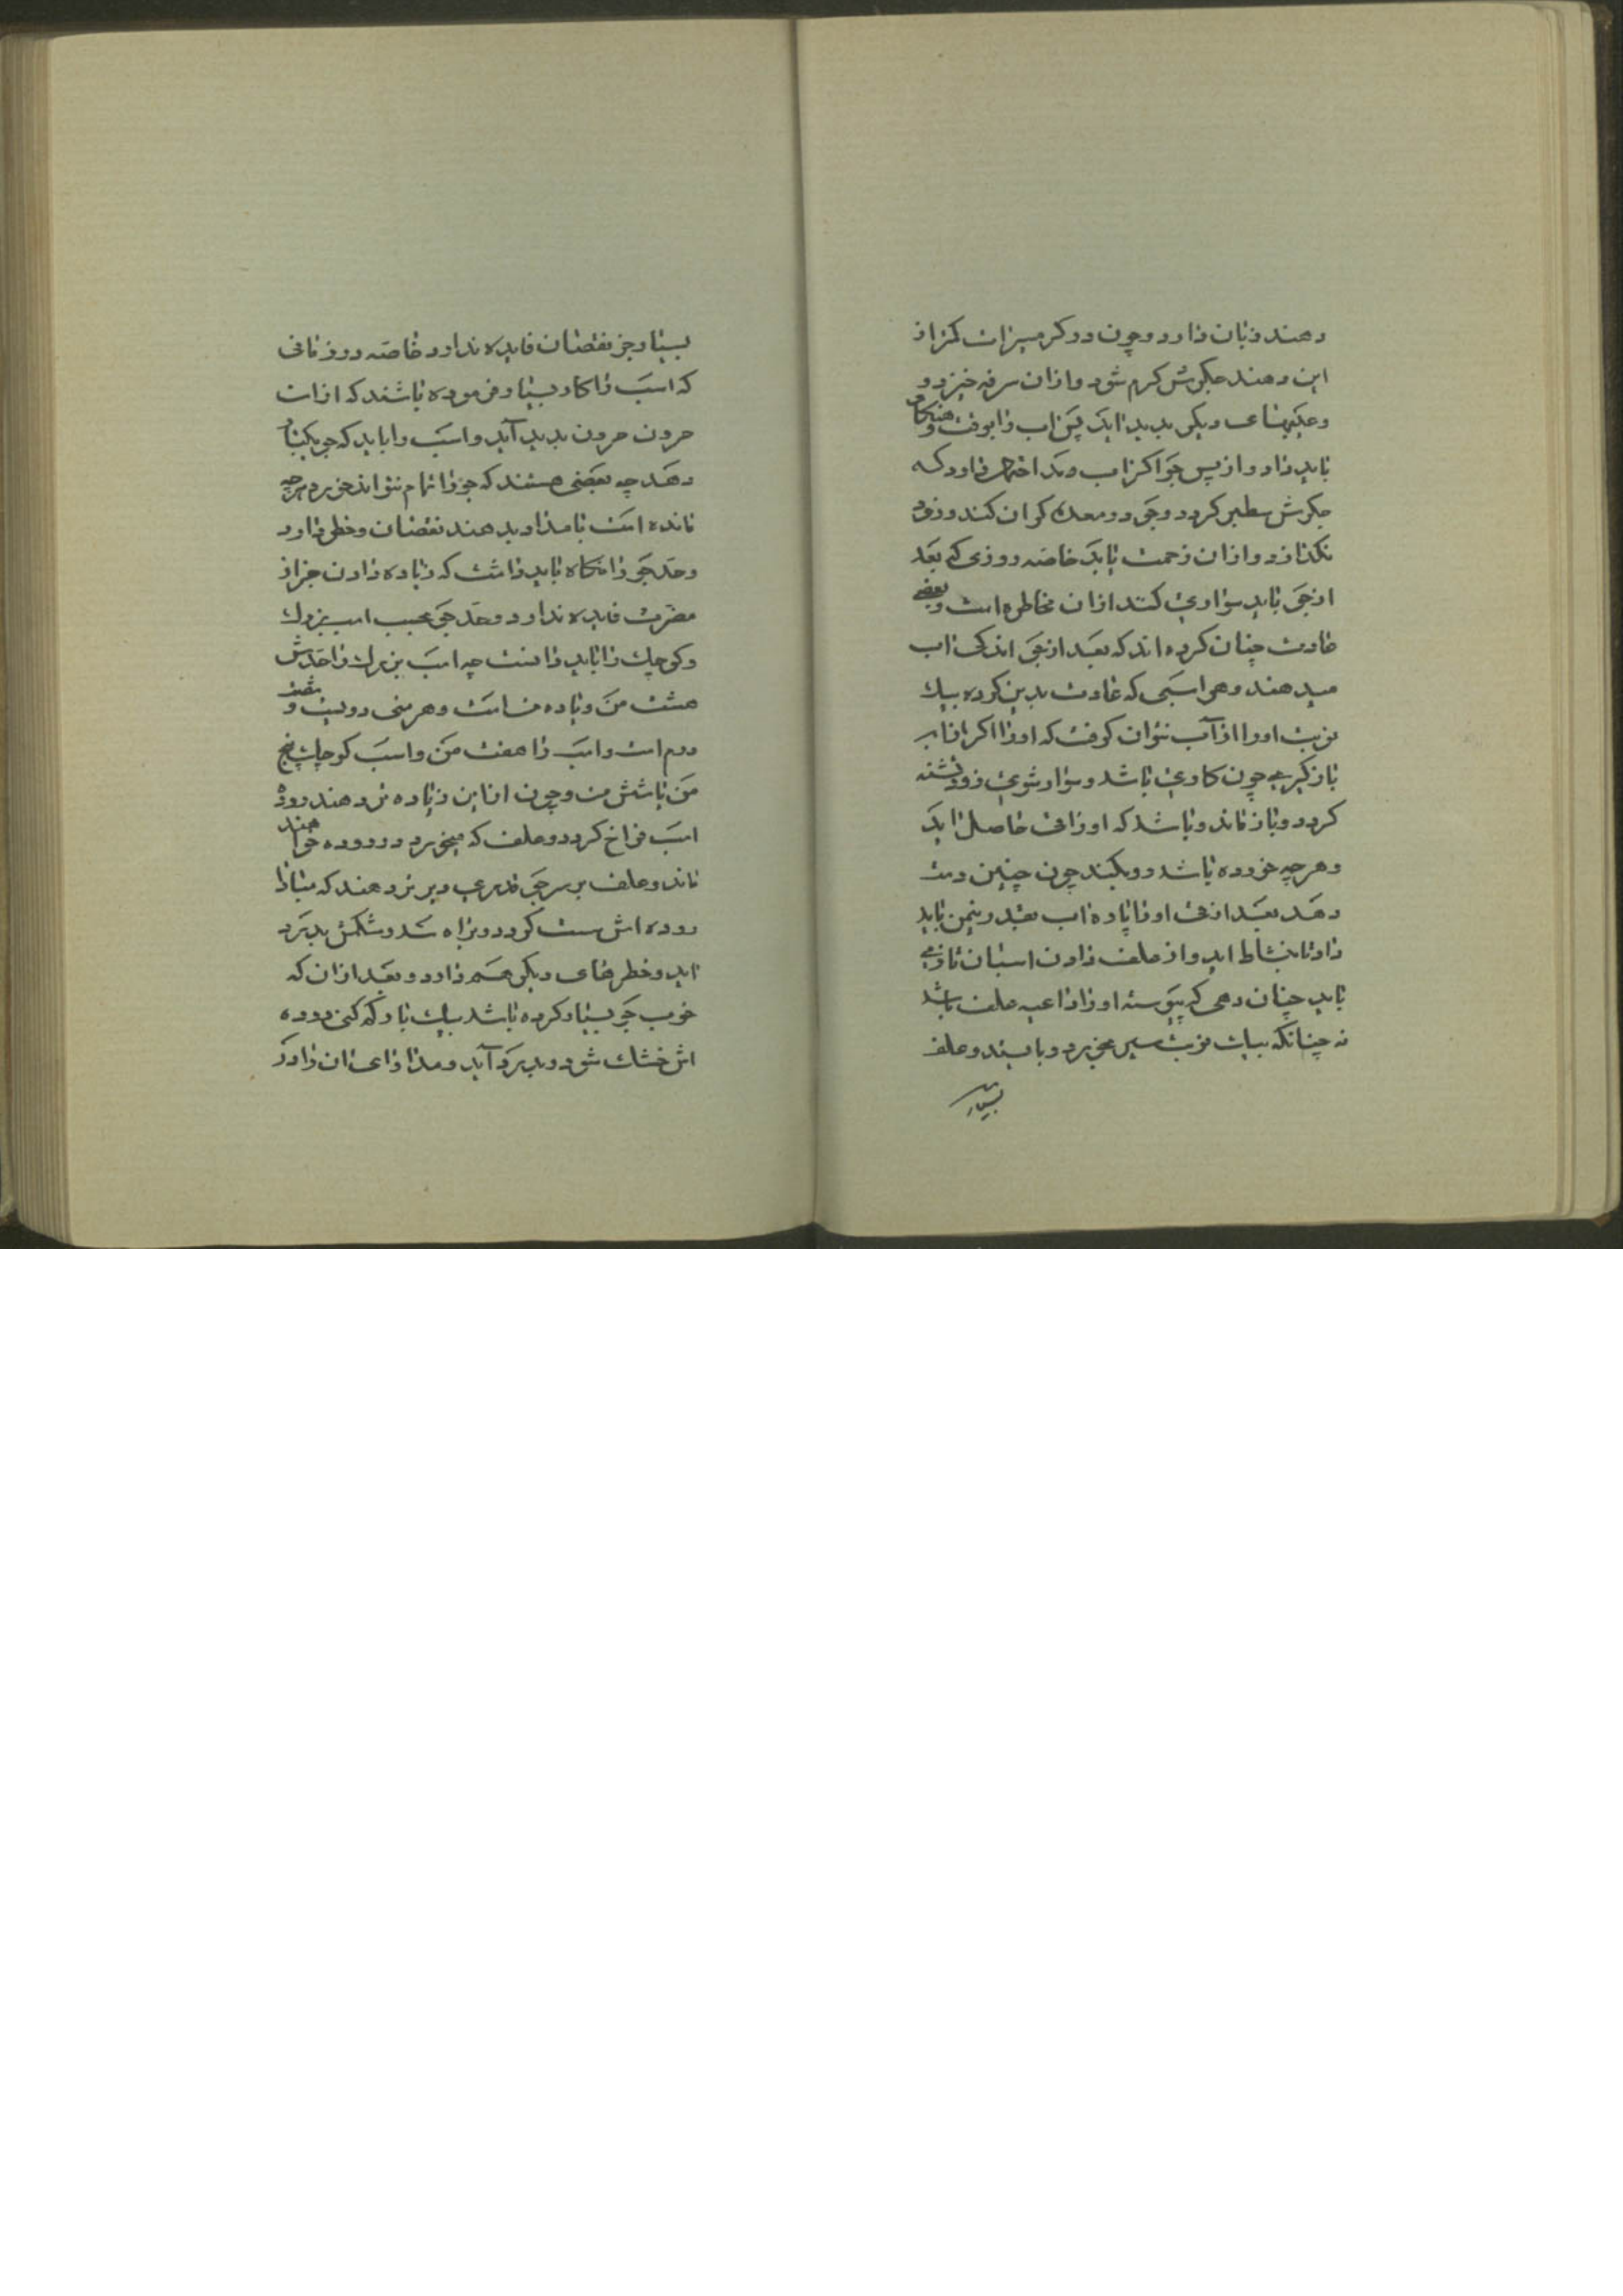 دهند زیان دارد و چون در کرمیزات کمتر از
این دهند جکرش کرم شود و از ان سرفه خیزد و
و دیکر بدید اید پس اب را بوقت و هنکام
باید داد و از پس جو اکر اب دهد دارد که
جکرش سطبر کردد و جو در معده کران کند و زود
نکذارد و ازان زحمت یابد خاصه روزی که بعد
از جو باید سواری کنند ازان مخاطره است و بعضی
عادت چنان کرده اند که بعد از جو اندکی اب
میدهند و هر اسبی که عادت بدین کرده بیک
نوبت او را از آب نتوان کرفت که او را اکر از اب
باز کیری چون کاری باشد و سوار شوی زود تشنه
کردد و باز ماند و باشد که او را قی حاصل اید
و هر چه خورده باشد رو بکند چون چنین دست
دهد بعد از قی او را پاره اب نیم باید
داد تا بنشاط اید و از علف دادن اسبان تازی
باید چنان دهی که پیوسته او را داعیه علف باشد
نه چنانکه بیک نوبت سیر بخورد و بایستد و علف
بسیار
بسیار جز نقصان فایده ندارد خاصه در زمانی
که اسب را کار بسیار فرموده باشند که از ان
حرون حرون بدید آید و اسب را باید که جو یکبار
دهد چه بعضی هستند که جو را تمام نتواند خورد هر چه
مانده است بامداد بدهند نقصان و خطر دارد
و حد جو را نکاه باید داشت که زیاده دادن جز از
مضرت فایده ندارد و حد جو بحسب اسب بزرک
و کوچک را باید دانست چه اسب بزرک را حدش
هشت من و زیاده است و هر منی دویست و شصت
درم است و اسب را هفت من و اسب کوچک پنج
من یا شش من و چون از این زیاده تر دهند رودۀ
اسب فراخ کردد و علف که میخورد در روده خواهد
ماند و علف بر سر جو قدری دیرتر دهند که مبادا
روده اش سست کردد و شکمش بدرد
اید و خطرهای دیکر هم دارد و بعد از ان که
خوب جو بسیار کرده باشد بیک بار که کم کنی روده
اش خشک شود و بدرد آید و مداوای ان دارد کر